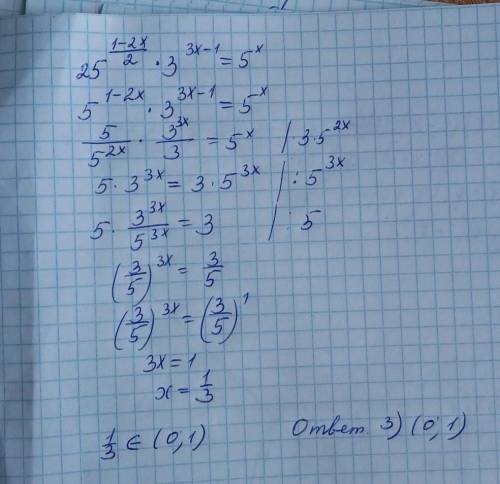 25^{\frac{1-2x}{2}} \cdot 3^{3x-1} = 5^x
5^{1-2x} \cdot 3^{3x-1} = 5^x
\frac{5}{5^{2x}} \cdot \frac{3^{3x}}{3} = 5^x / 3 \cdot 5^{2x}
5 \cdot 3^{3x} = 3 \cdot 5^{3x} / : 5^{3x}
5 \cdot \frac{3^{3x}}{5^{3x}} = 3 / : 5
(\frac{3}{5})^{3x} = \frac{3}{5}
(\frac{3}{5})^{3x} = (\frac{3}{5})^1
3x = 1
x = \frac{1}{3}
\frac{1}{3} ∈ (0; 1) Ответ. 3) (0; 1)